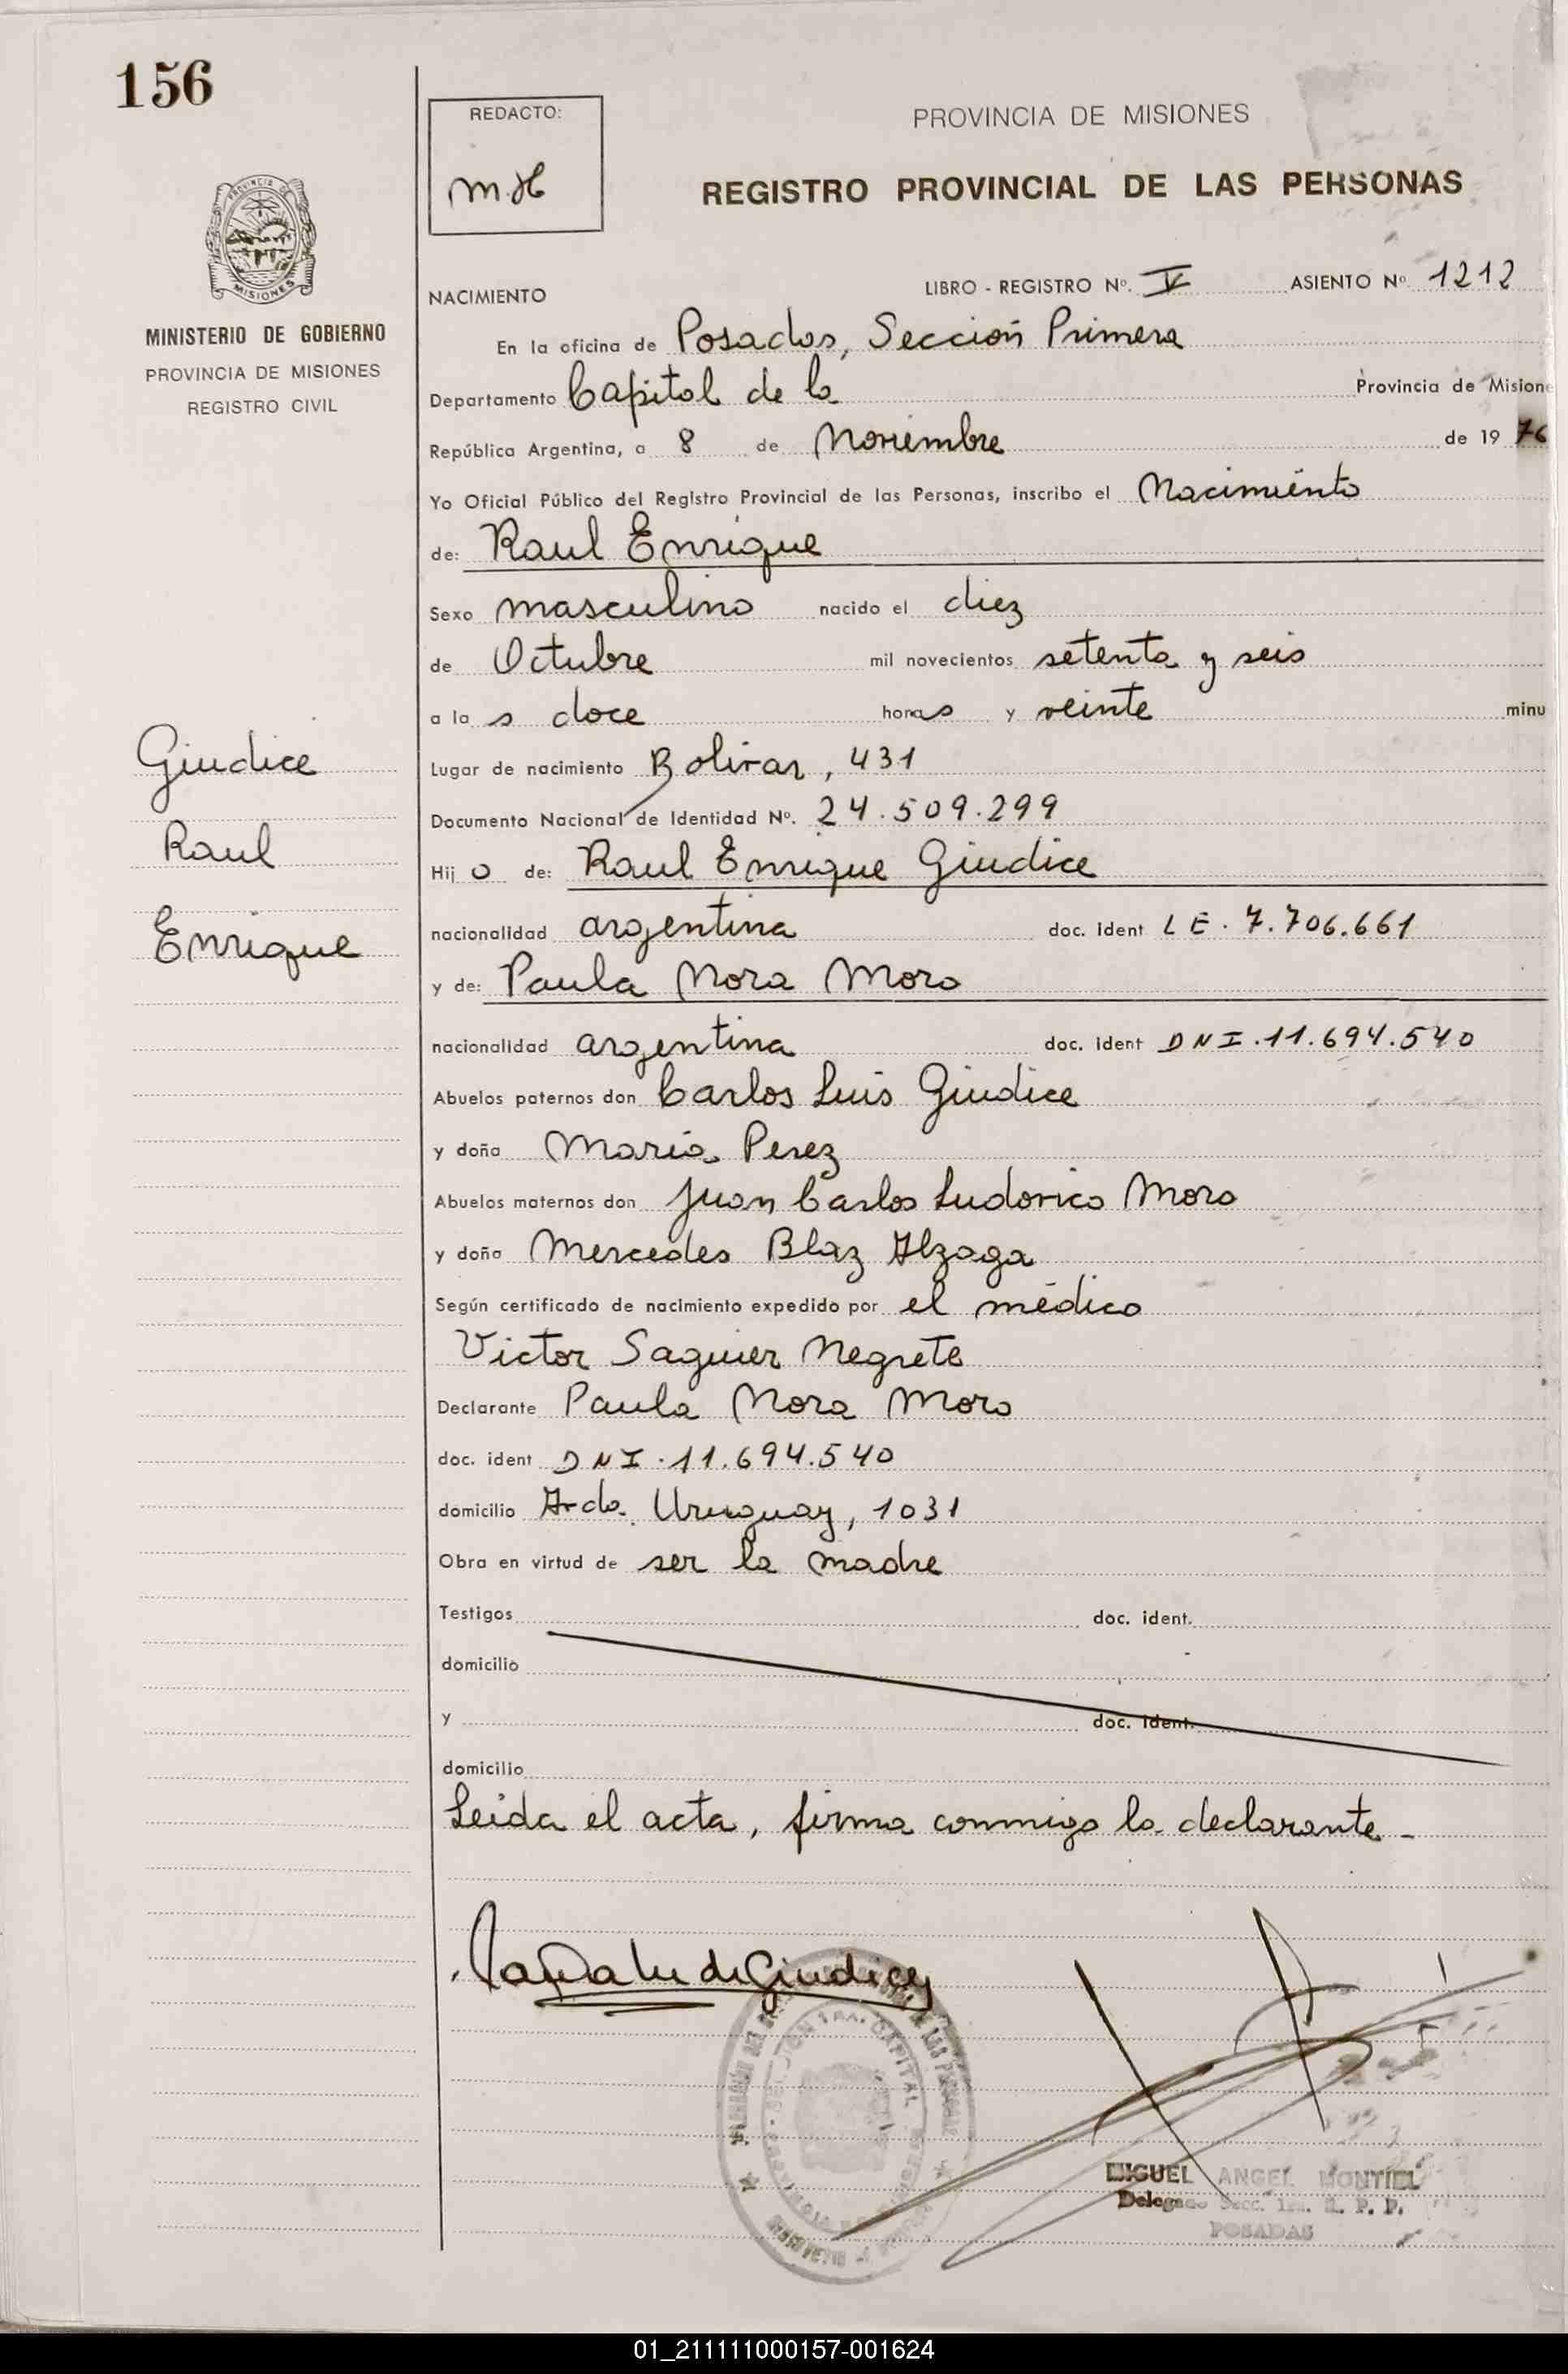 156
REDACTO:
M.H
PROVINCIA DE MISIONES
REGISTRO PROVINCIAL DE LAS PERSONAS
MISIONES
MINISTERIO DE GOBIERNO
PROVINCIA DE MISIONES
REGISTRO CIVIL
NACIMIENTO
LIBRO - REGISTRO Nº. V ASIENTO Nº 1212
En la oficina de Posadas, Sección Primera
Departamento Capital de la Provincia de Misione
República Argentina, a 8 de Noviembre de 1976
Yo Oficial Público del Registro Provincial de las Personas, inscribo el Nacimiento
de: Raul Enrique
Sexo masculino nacido el diez
de Octubre mil novecientos setenta y seis
a las doce horas y veinte minu
Giudice
Raul
Enrique
Lugar de nacimiento Bolivar, 431
Documento Nacional de Identidad Nº. 24.509.299
Hijo de: Raul Enrique Giudice
nacionalidad argentina doc. ident LE. 7.706.661
y de: Paula Nora Moro
nacionalidad argentina doc. ident DNI.11.694.540
Abuelos paternos don Carlos Luis Giudice
y doña Maria Perez
Abuelos maternos don Juan Carlos Ludovico Moro
y doña Mercedes Blaz Alzaga
Según certificado de nacimiento expedido por el médico
Victor Saguier Negrete
Declarante Paula Nora Moro
doc. ident DNI.11.694.540
domicilio Avda. Uruguay, 1031
Obra en virtud de ser la madre
Testigos doc. ident.
domicilio
y doc. ident.
domicilio
Leida el acta, firma conmigo la declarante -
de Giudice
MIGUEL ANGEL MONTIEL
Delegado Secc. 1ra. R. P. P.
POSADAS
01_211111000157-001624